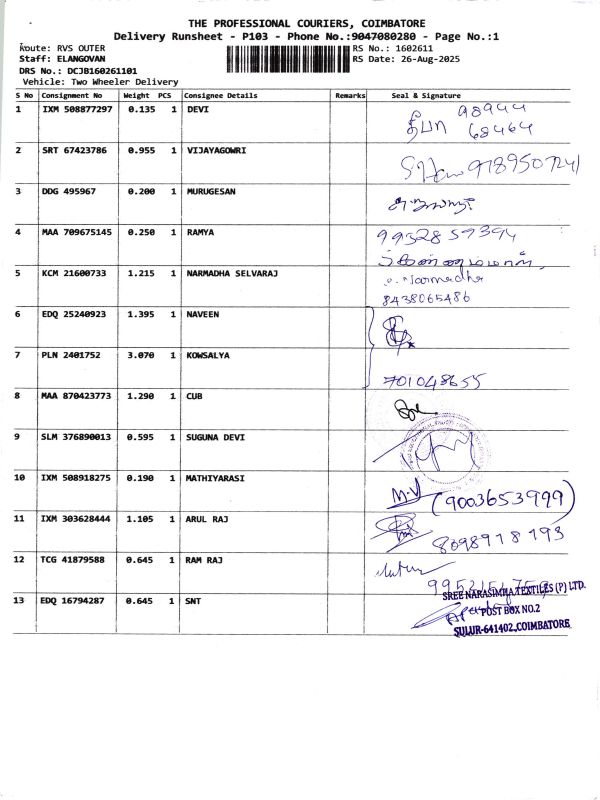 THE PROFESSIONAL COURIERS, COIMBATORE
Delivery Runsheet - P103 - Phone No.:9047080280 - Page No.:1
Route: RVS OUTER
RS No.: 1602611
Staff: ELANGOVAN
RS Date: 26-Aug-2025
DRS No.: DCJB160261101
Vehicle: Two Wheeler Delivery
S No Consignment No Weight PCS Consignee Details Remarks Seal & Signature
1 IXM 508877297 0.135 1 DEVI தீபா 98944
68464
2 SRT 67423786 0.955 1 VIJAYAGOWRI
3 DDG 495967 0.200 1 MURUGESAN
4 MAA 709675145 0.250 1 RAMYA 9952859394
5 KCM 21600733 1.215 1 NARMADHA SELVARAJ
Narmadha
8438065486
6 EDQ 25240923 1.395 1 NAVEEN
7 PLN 2401752 3.070 1 KOWSALYA 701048655
8 MAA 870423773 1.290 1 CUB
9 SLM 376890013 0.595 1 SUGUNA DEVI
10 IXM 508918275 0.190 1 MATHIYARASI M.V (9003653999)
11 IXM 303628444 1.105 1 ARUL RAJ 8098918193
12 TCG 41879588 0.645 1 RAM RAJ
13 EDQ 16794287 0.645 1 SNT SREE NARASIMHA TEXTILES (P) LTD.
POST BOX NO.2
SULUR-641402, COIMBATORE